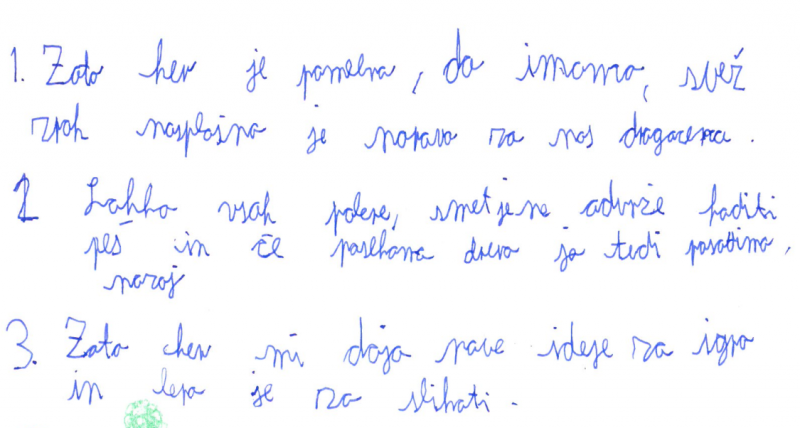 1. Zato ker je pomebno, da imamo, svež
zrak nasplošno je narava za nas dragocena.
2 Lahko vsak pobere, smetje ne odvrže hoditi
peš in če posekamo drevo ja tudi posadimo,
nazaj
3. Zato ker mi daja nove ideje za igro
in lepo je za slikati.